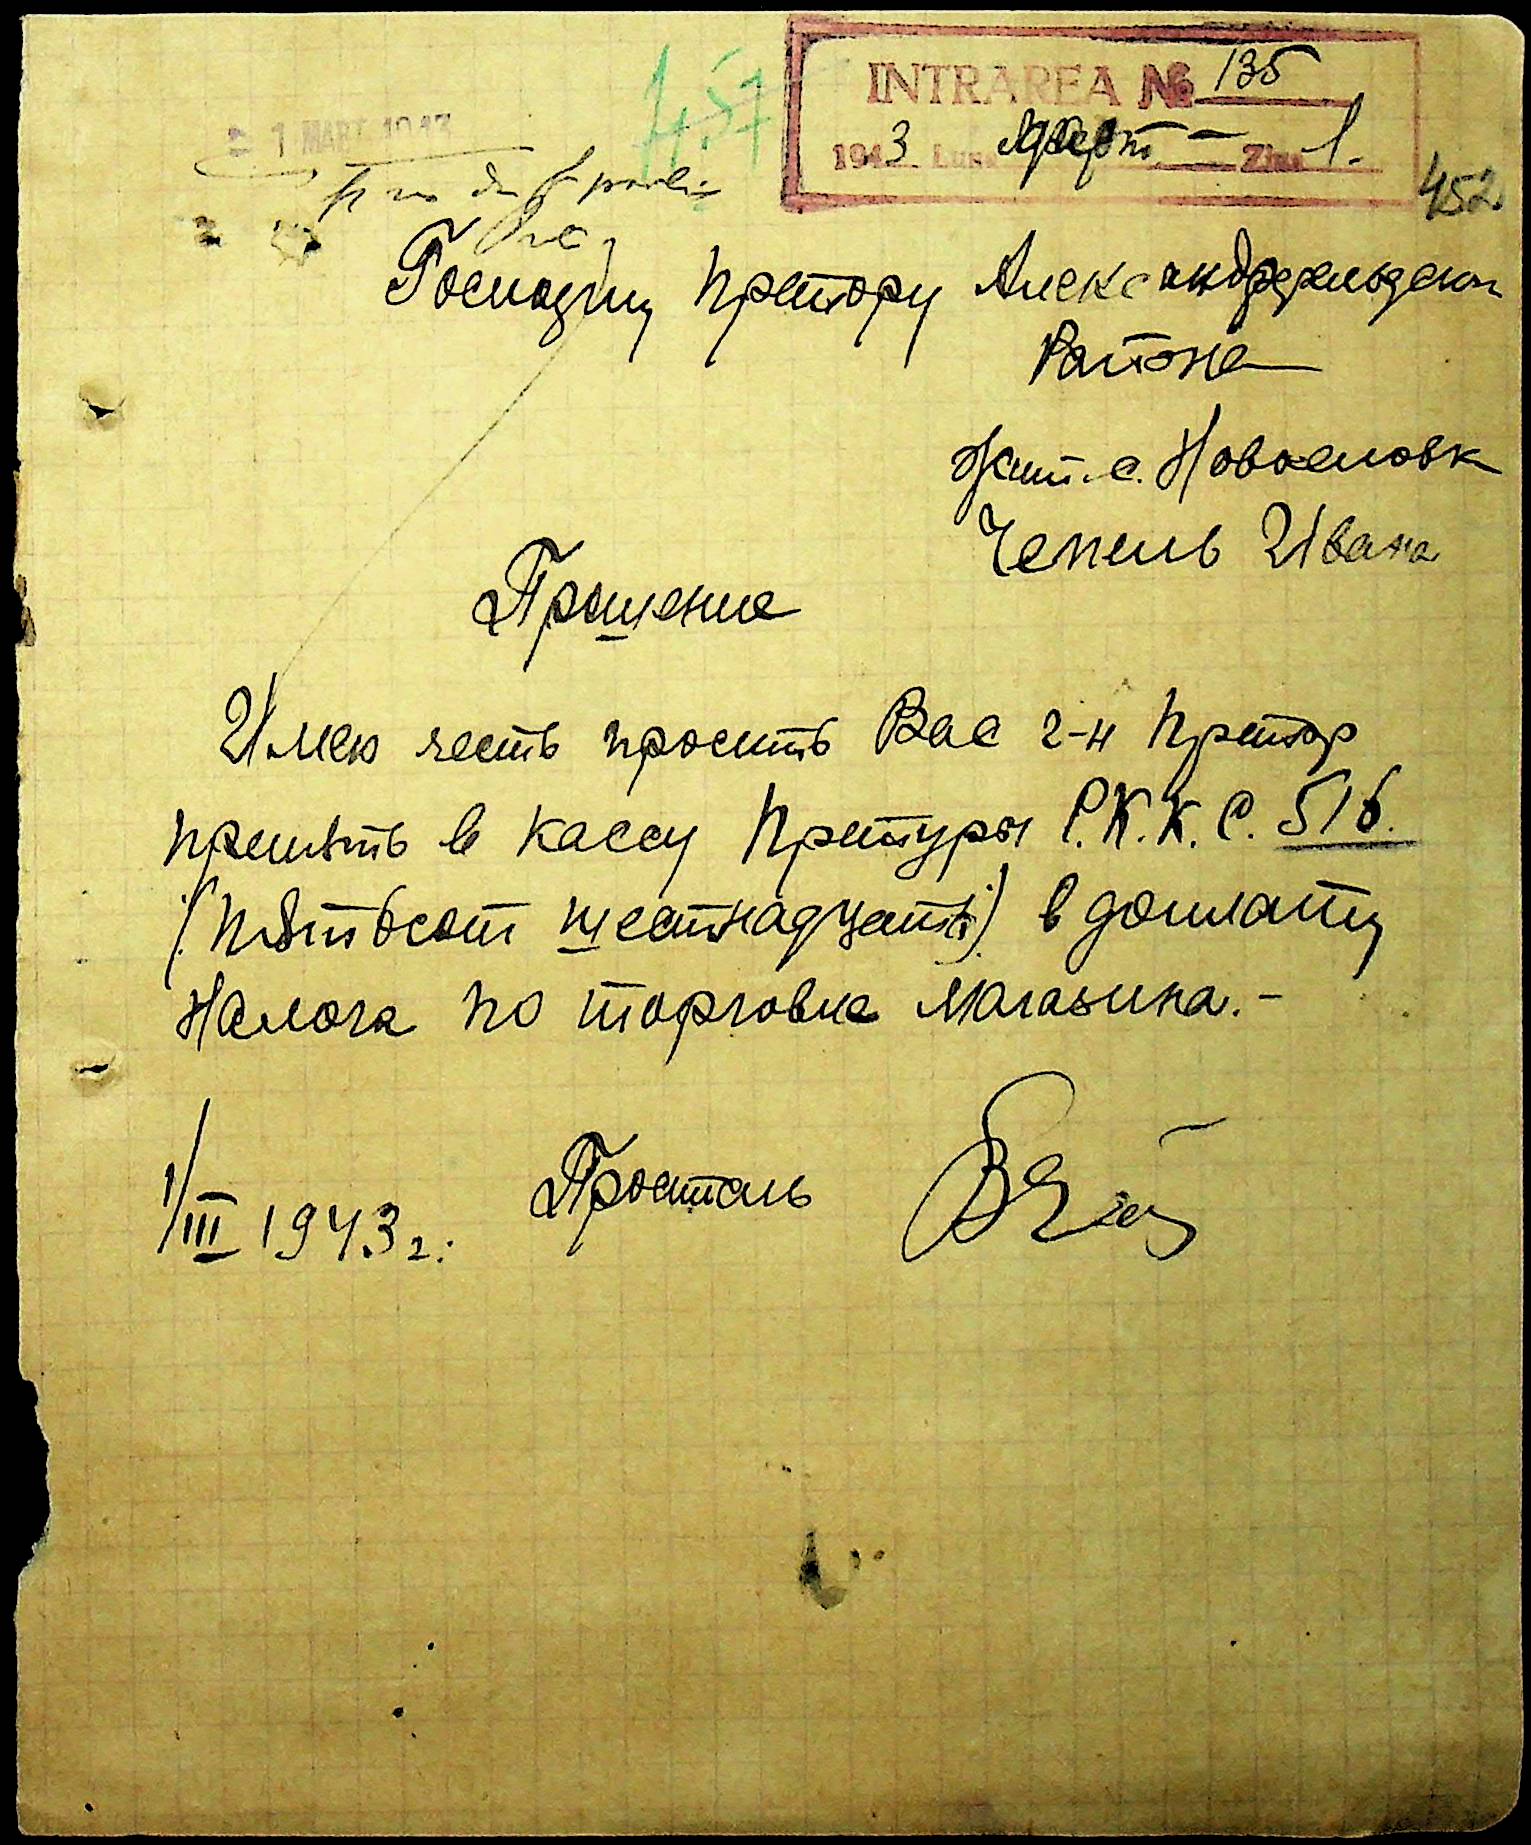 INTRAREA № 135
1943 Luna Март - Ziua 1.
1 MART 1943
457
452
Господину Претору Александрфельдског
Района
Жит. с. Новоселовк
Чепель Ивана
Прошение
Имею честь просить Вас г-н Претор
принять в кассу Претуры Р.К.К.С. 516.
(Пятьсот шестнадцать) в доплату
Налога по торговле магазина.-
1/III 1943 г.
Проситель